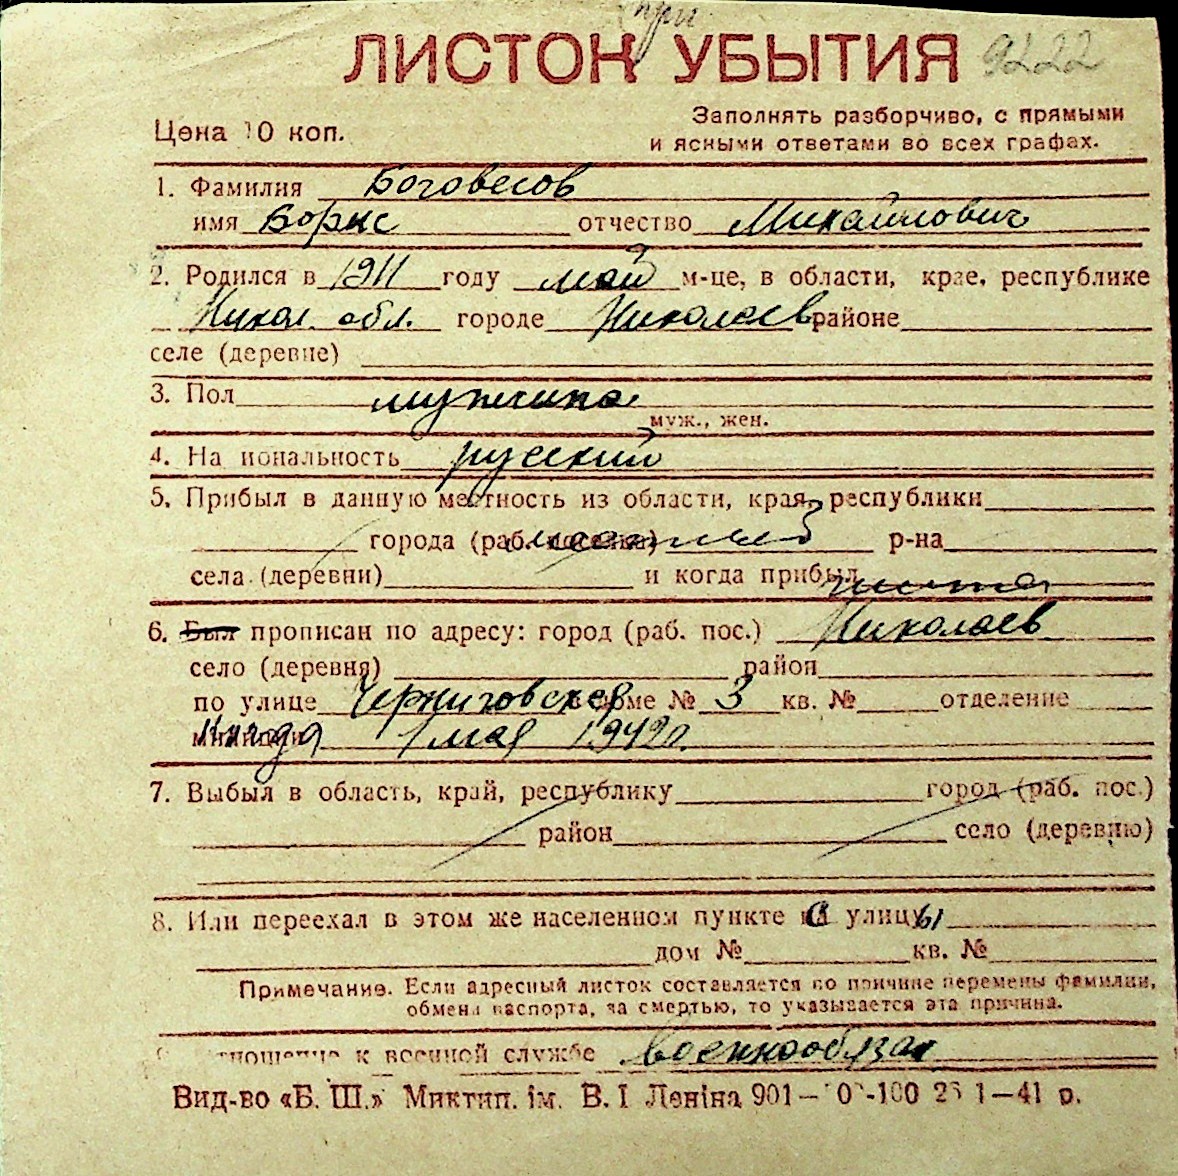 при
ЛИСТОК УБЫТИЯ 9222
Цена 10 коп.
Заполнять разборчиво, с прямыми
и ясными ответами во всех графах.
1. Фамилия Боговесов
имя Борис отчество Михайлович
2. Родился в 1911 году май м-це, в области, крае, республике
Никол. обл. городе Николаев районе
селе (деревне)
3. Пол мужчина
муж., жен.
4. На иональность русский
5. Прибыл в данную местность из области, края, республики
города (раб. поселка) местный р-на
села (деревни) и когда прибыл
6. Был прописан по адресу: город (раб. пос.) Николаев
село (деревня) район
по улице Черниговская доме № 3 кв. № отделение
милиции Когда 1 мая 1942г.
7. Выбыл в область, край, республику город (раб. пос.)
район село (деревню)
8. Или переехал в этом же населенном пункте с улицы
дом № кв. №
Примечание. Если адресный листок составляется по причине перемены фамилии,
обмена паспорта, за смертью, то указывается эта причина.
тношение к военной службе военнообязан
Вид-во «Б. Ш.» Миктип. ім. В. І Леніна 901— 100 1—41 р.